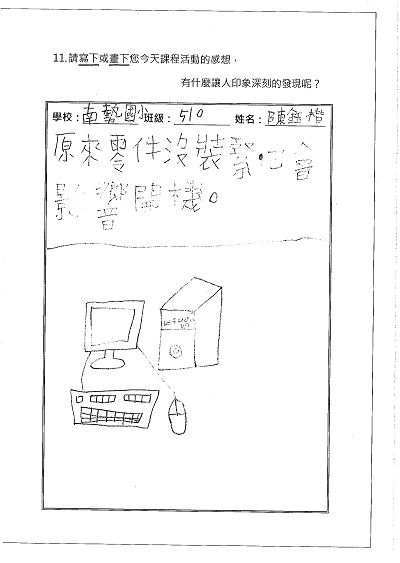 11.請寫下或畫下您今天課程活動的感想，
有什麼讓人印象深刻的發現呢？
學校：南藝國小班級：510 姓名：陳鈺楷
原來零件沒裝緊，也會
影響開機。